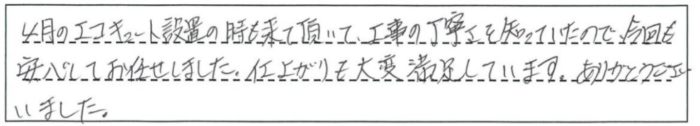 4月のエコキュート設置の時も来て頂いて、工事の丁寧さを知っていたので、今回も
安心してお任せしました。仕上がりも大変満足しています。ありがとうござ
いました。